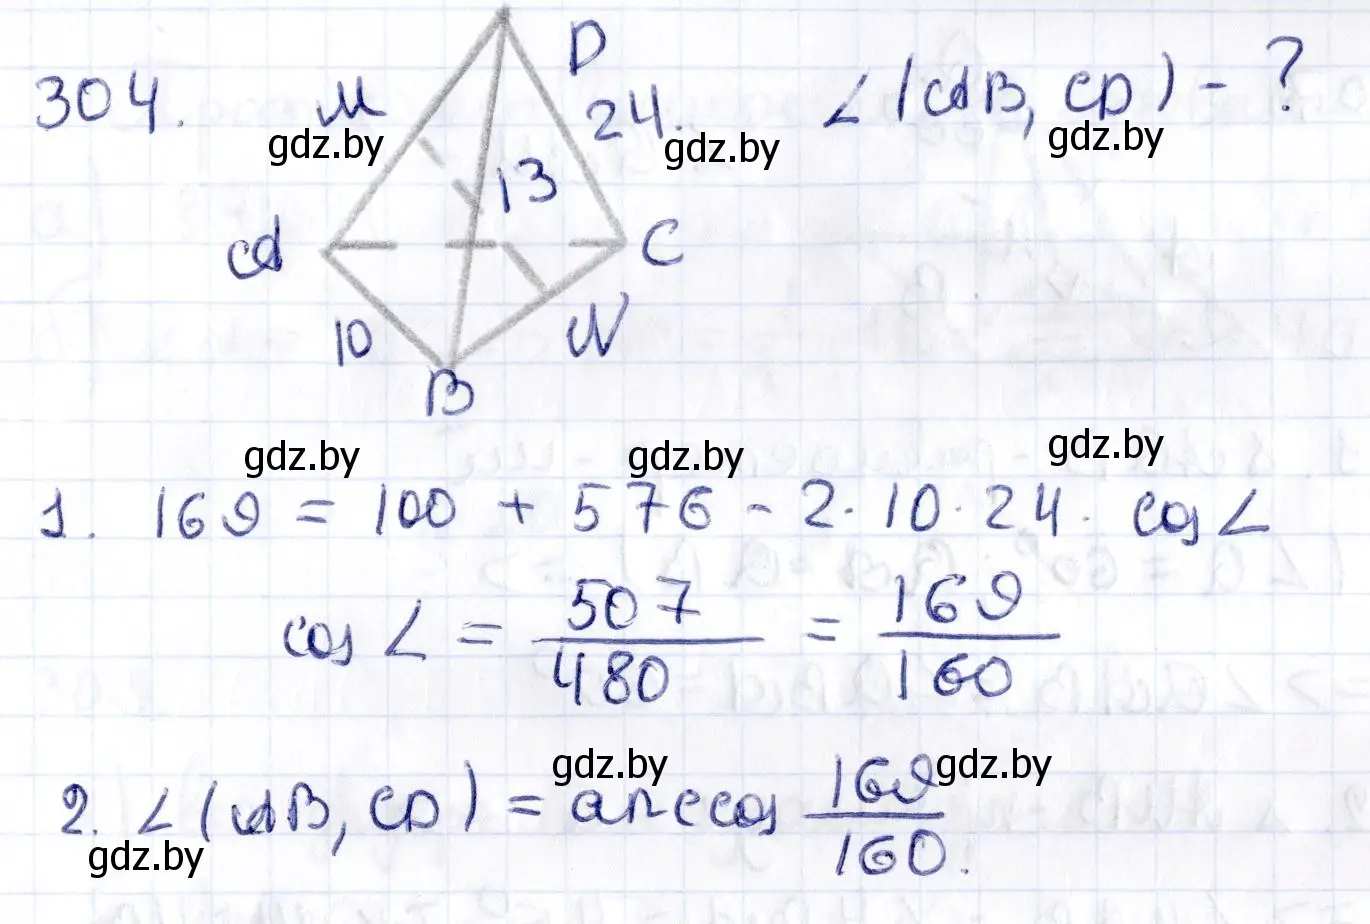 D
304. M 24. ∠(AB, CD) - ?
gdz.by gdz.by gdz.by
13
A C
10 N
B
gdz.by gdz.by gdz.by
1. 169 = 100 + 576 - 2·10·24· cos∠
cos∠ = 507/480 = 169/160
gdz.by gdz.by
2. ∠(AB, CD) = arccos 169/160.
gdz.by